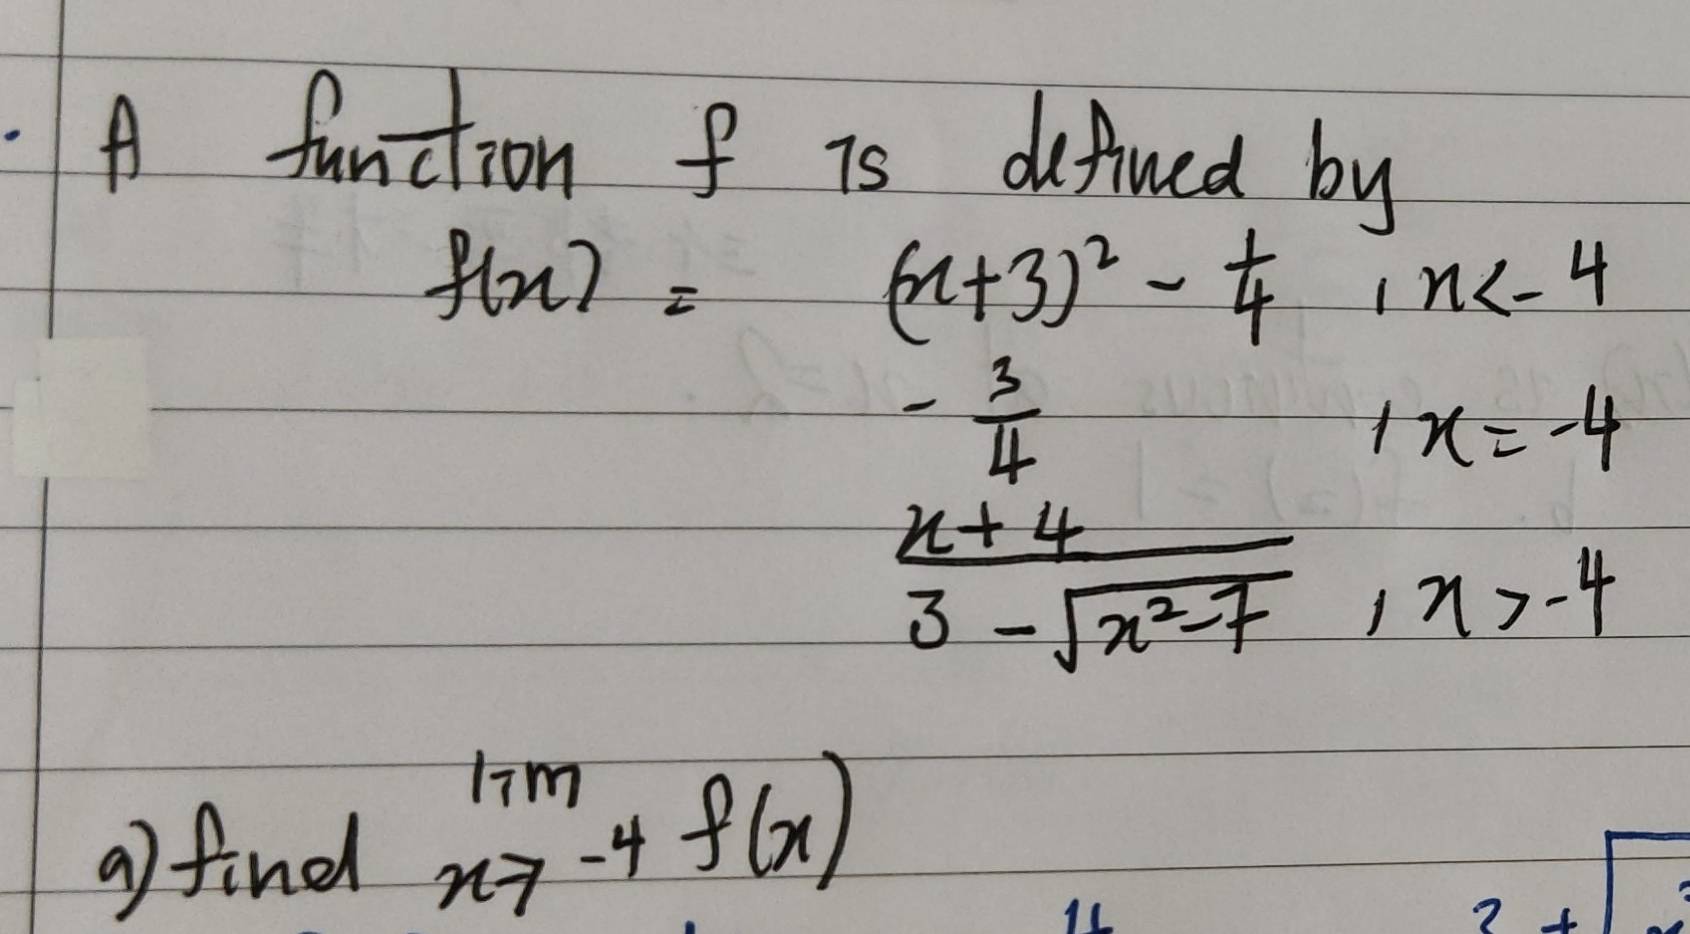 A function f is defined by
f(x) = (x+3)² - 1/4 , x < -4
- 3/4 , x = -4
x+4 / 3 - √x²-7 , x > -4
a) find lim x→ -4 f(x)